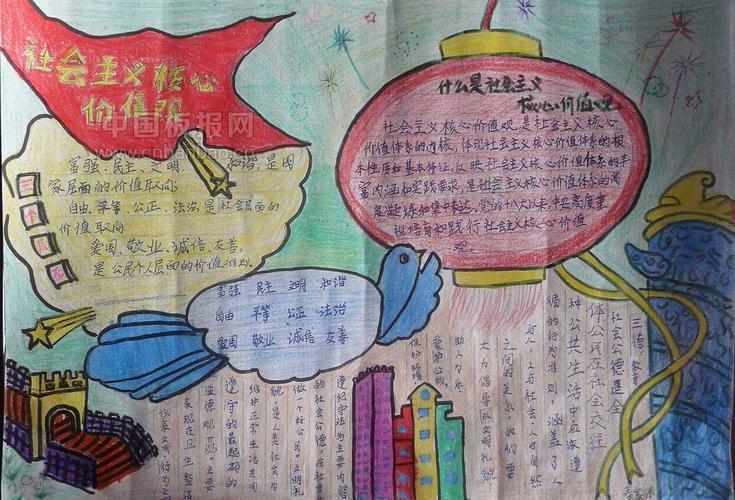 社会主义核心
价值观
中国板报网
www.cnbanbao.cn
富强、民主、文明、和谐,是国
家层面的价值取向
自由、平等、公正、法治,是社会层面的
价值取向
爱国、敬业、诚信、友善,
是公民个人层面的价值准则。
什么是社会主义
核心价值观。
社会主义核心价值观,是社会主义核心
价值体系的内核,体现社会主义核心价值体系的根
本性质和基本特征,反映社会主义核心价值体系的丰
富内涵和实践要求,是社会主义核心价值体系的高
度凝练和集中表达。党的十八大以来,中央高度重
视培育和践行社会主义核心价值
观。
富强 民主 文明 和谐
自由 平等 公正 法治
爱国 敬业 诚信 友善
三德教育
社会公德是全
体公民在社会交往
种公共生活中应该遵
循的行为准则,涵盖了人
与人、人与社会、人与自然
之间的关系,我们要
大力倡导以文明礼貌
助人为乐
爱护公物
保护环境
遵纪守法为主要内容
的社会公德,在社会
做一个好公民。文明礼
貌是人类社会为
维护正常生活共同
遵守的最起码的
道德规范,主要
表现在卫生整洁